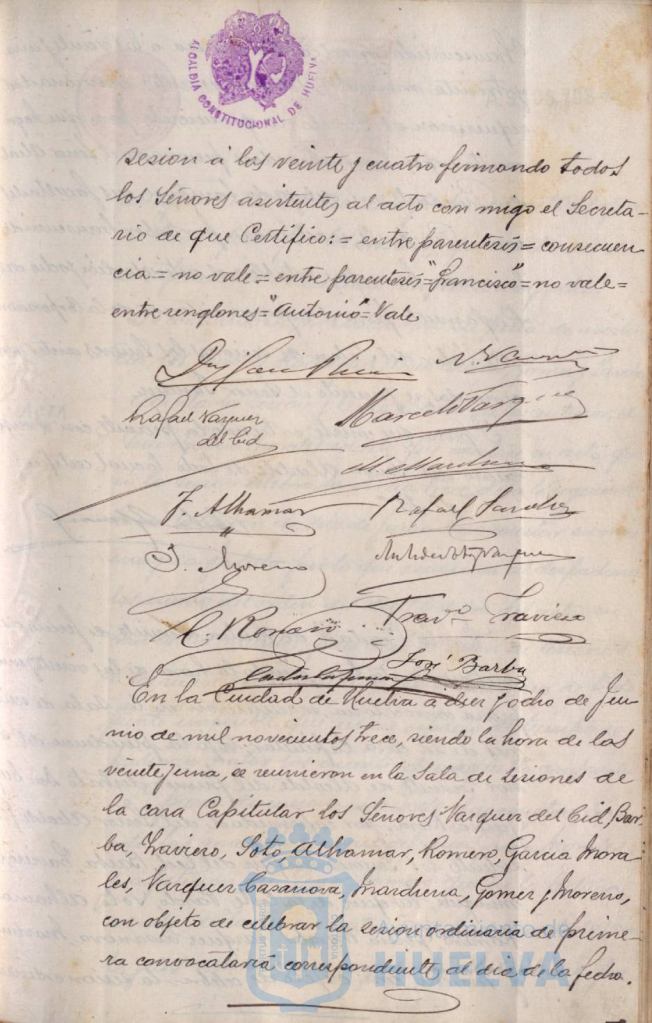 ALCALDIA CONSTITUCIONAL DE HUELVA
sesion á las veinte y cuatro firmando todos
los Señores asistentes al acto con migo el Secreta-
rio de que Certifico: = entre parentesis = consecuen
cia = no vale = entre parentesis "Francisco" = no vale =
entre renglones = "Antonio" = Vale
Rafael Vazquez
del Cid
Marcelo Vazquez
M. Mardueña
F. Alhamar
Rafael Sanchez
J. Moreno
C. Romero
Franco Travieso
José Barba
En la Ciudad de Huelva á diez y ocho de Ju-
nio de mil novecientos trece, siendo la hora de las
veinte y una, se reunieron en la Sala de sesiones de
la casa Capitular los Señores Vazquez del Cid, Bar-
ba, Travieso, Soto, Alhamar, Romero, Garcia Mora-
les, Vazquez Casanova, Mardueña, Gomez y Moreno,
con objeto de celebrar la sesion ordinaria de prime-
ra convocataria correspondiente al dia de la fecha.
HUELVA